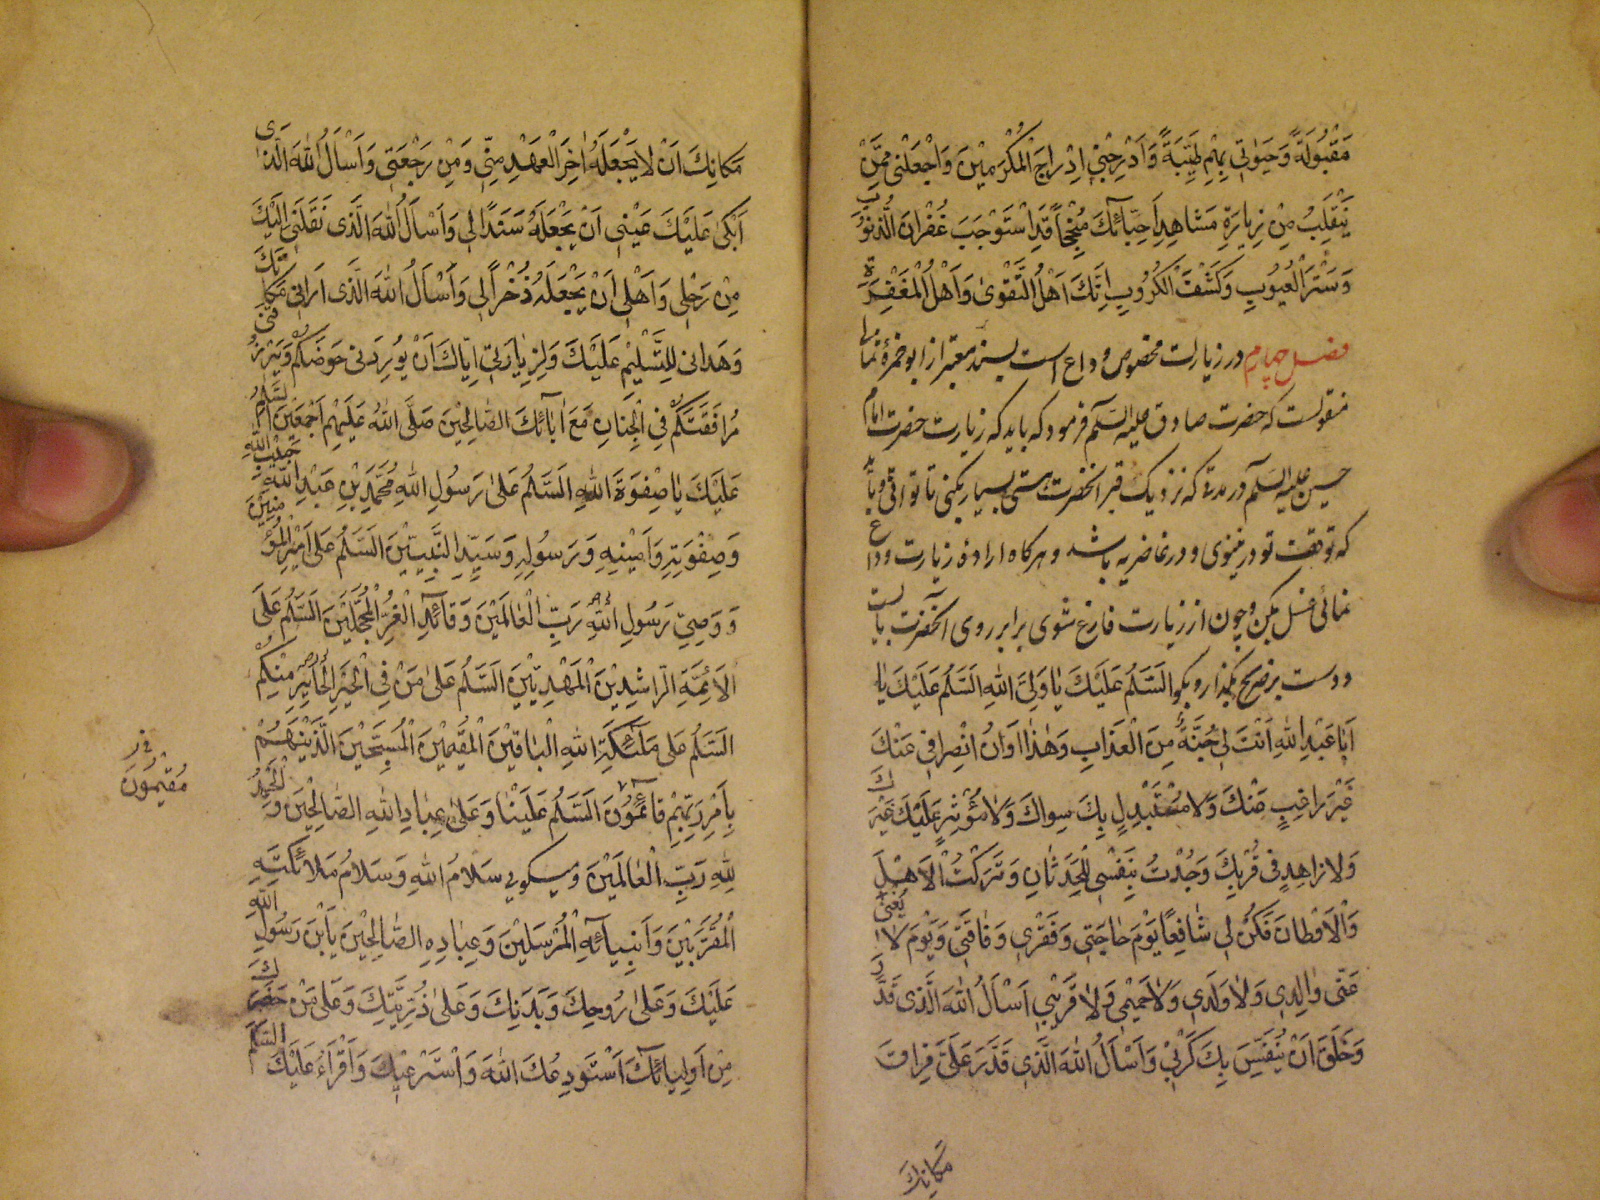 مَقْبُولَةً وَحَيٰوتي بِهِمْ طَيِّبَةً وَاَدْرِجْنِي اِدْراجَ الْمُكْرَمينَ وَاجْعَلْني مِمَّنْ
يَنْقَلِبُ مِنْ زِيارَةِ مَشاهِدِ اَحِبّائِكَ مُنْجِحاً قَدِ اسْتَوْجَبَ غُفْرانَ الذُّنُوبِ
وَسَتْرَ الْعُيُوبِ وَكَشْفَ الْكُرُوبِ اِنَّكَ اَهْلُ التَّقْوىٰ وَاَهْلُ الْمَغْفِرَةِ
فصل چهارم در زيارت مخصوص وداع است بسند معتبر از ابو حمزهٔ ثمالى
منقولست كه حضرت صادق عليه السّلم فرمود كه بايد كه زيارت حضرت امام
حسين عليه السّلم در مدتى كه نزديك قبر آنحضرت هستى بسيار بكنى تا توانى و بايد
كه توقف تو در نينوى و در غاضريه باشد و هركاه اراده زيارت وداع
نمائى غسل بكن و چون از زيارت فارغ شوى برابر روى آنحضرت بايست
و دست بر ضريح بگذار و بگو اَلسَّلٰمُ عَلَيْكَ يا وَلِيَّ اللهِ اَلسَّلٰمُ عَلَيْكَ يا
اَبا عَبْدِ اللهِ اَنْتَ لي جُنَّةٌ مِنَ الْعَذابِ وَهٰذا اَوانُ انْصِرافي عَنْكَ
غَيْرَ راغِبٍ عَنْكَ وَلا مُسْتَبْدِلٍ بِكَ سِواكَ وَلا مُؤْثِرٍ عَلَيْكَ غَيْرَكَ
وَلا زاهِدٍ في قُرْبِكَ وَجُدْتُ بِنَفْسي لِلْحَدَثانِ وَتَرَكْتُ الْاَهْلَ
وَالْاَوْطانَ فَكُنْ لي شافِعًا يَوْمَ حاجَتي وَفَقْري وَفاقَتي وَيَوْمَ لا يُغْني
عَنّي والِدي وَلا وَلَدي وَلا حَميمي وَلا قَريبي اَسْاَلُ اللهَ الَّذي قَدَّرَ
وَخَلَقَ اَنْ يُنَفِّسَ بِكَ كَرْبي وَاَسْاَلُ اللهَ الَّذي قَدَّرَ عَلَيَّ فِراقَ
مَكانِكَ
مَكانِكَ اَنْ لا يَجْعَلَهُ اٰخِرَ الْعَهْدِ مِنّي وَمِنْ رَجْعَتي وَاَسْاَلُ اللهَ الَّذى
اَبْكى عَلَيْكَ عَيْني اَنْ يَجْعَلَهُ سَنَدًا لي وَاَسْاَلُ اللهَ الَّذى نَقَلَني اِلَيْكَ
مِنْ رَحْلي وَاَهْلي اَنْ يَجْعَلَهُ ذُخْراً لي وَاَسْاَلُ اللهَ الَّذى اَراني مَكانَكَ
وَهَداني لِلتَّسْليمِ عَلَيْكَ وَلِزِيارَتي اِيّاكَ اَنْ يُورِدَني حَوْضَكُمْ وَيَرْزُقَني
مُرافَقَتَكُمْ فِي الْجِنانِ مَعَ اٰبائِكَ الصّالِحينَ صَلَّى اللهُ عَلَيْهِمْ اَجْمَعينَ اَلسَّلٰمُ
عَلَيْكَ يا صَفْوَةَ اللهِ اَلسَّلٰمُ عَلىٰ رَسُولِ اللهِ مُحَمَّدِ بْنِ عَبْدِ اللهِ حَبيبِ اللهِ
وَصِفْوَتِهِ وَاَمينِهِ وَرَسُولِهِ وَسَيِّدِ النَّبِيّينَ اَلسَّلٰمُ عَلىٰ اَميرِ الْمُؤْمِنينَ
وَوَصِيِّ رَسُولِ اللهِ رَبِّ الْعالَمينَ وَقائِدِ الْغُرِّ الْمُحَجَّلينَ اَلسَّلٰمُ عَلَى
الْاَئِمَّةِ الرّاشِدينَ الْمَهْدِيّينَ اَلسَّلٰمُ عَلىٰ مَنْ فِي الْحَيْرِ الْحائِرِ مِنْكُمْ
اَلسَّلٰمُ عَلى مَلٰئِكَةِ اللهِ الْباقينَ الْمُقيمينَ الْمُسَبِّحينَ الَّذينَ هُمْ
بِاَمْرِ رَبِّهِمْ قائِمُونَ اَلسَّلٰمُ عَلَيْنا وَعَلىٰ عِبادِ اللهِ الصّالِحينَ وَالْحَمْدُ
مُقيمُونَ
لِلّٰهِ رَبِّ الْعالَمينَ و ميكويى سَلامُ اللهِ وَسَلامُ مَلائِكَتِهِ
الْمُقَرَّبينَ وَاَنْبِيائِهِ الْمُرْسَلينَ وَعِبادِهِ الصّالِحينَ يَا بْنَ رَسُولِ اللهِ
عَلَيْكَ وَعَلىٰ رُوحِكَ وَبَدَنِكَ وَعَلىٰ ذُرِّيَّتِكَ وَعَلىٰ مَنْ حَضَرَكَ
مِنْ اَوْلِيائِكَ اَسْتَوْدِعُكَ اللهَ وَاَسْتَرْعيكَ وَاَقْرَاُ عَلَيْكَ السَّلٰمَ